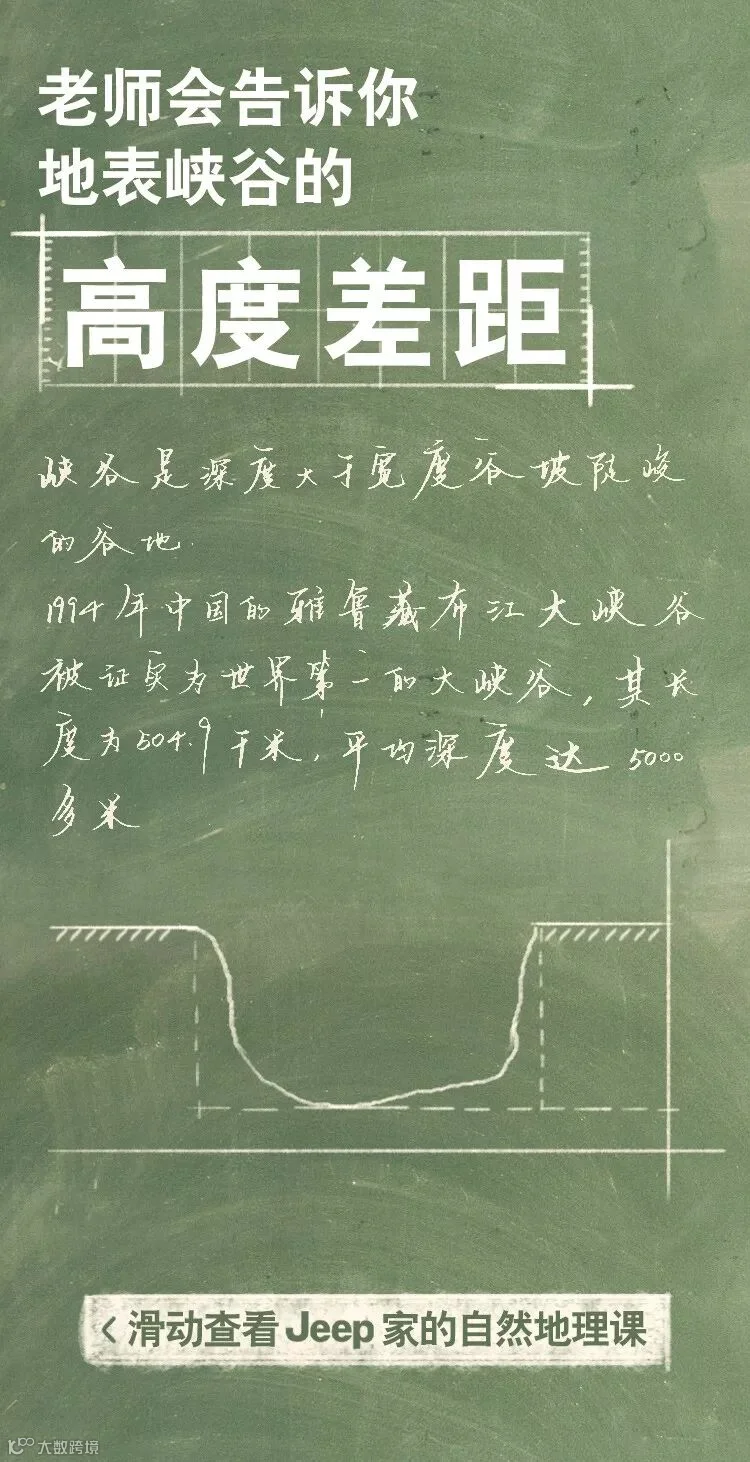 老师会告诉你
地表峡谷的
高度差距
峡谷是深度大于宽度谷坡陡峻
的谷地.
1994年中国的雅鲁藏布江大峡谷
被证实为世界第一的大峡谷，其长
度为504.9千米，平均深度达5000
多米
<滑动查看 Jeep 家的自然地理课
大数跨境